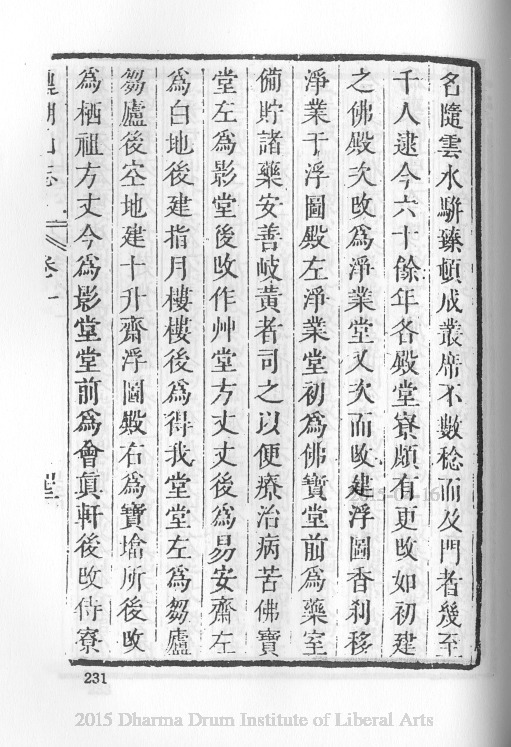 名隨雲水駢臻頓成叢席不數稔而及門者幾至
千人逮今六十餘年各殿堂寮頗有更改如初建
之佛殿次改為淨業堂又次而改建浮圖香剎移
淨業于浮圖殿左淨業堂初為佛寶堂前為藥室
備貯諸藥安善岐黃者司之以便療治病苦佛寶
堂左為影堂後改作艸堂方丈丈後為易安齋左
為白地後建指月樓樓後為得我堂堂左為芻廬
芻廬後空地建十升齋浮圖殿右為寶墖所後改
為栖祖方丈今為影堂堂前為會真軒後改侍寮
山志 卷一
231
2015 Dharma Drum Institute of Liberal Arts